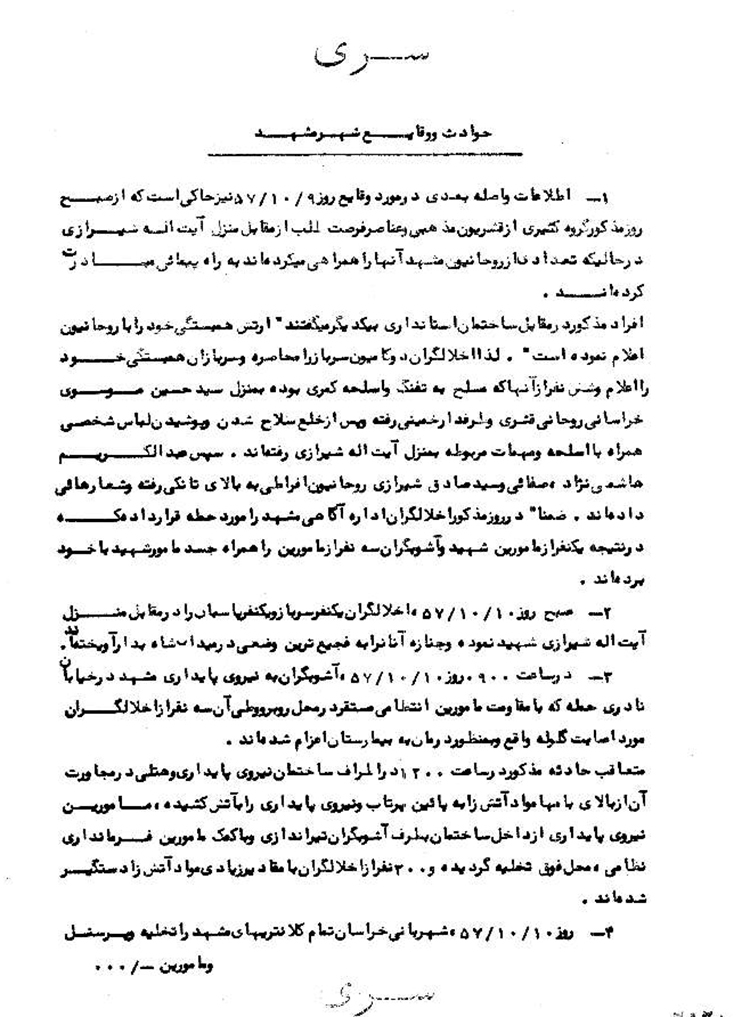 سری
حوادث ووقایع شهر مشهد
۱- اطلاعات واصله بعدی درمورد وقایع روز ۵۷/۱۰/۹ نیز حاکی است که از صبح
روز مذکور گروه کثیری از قشریون مذهبی وعناصر فرصت طلب از مقابل منزل آیت اله شیرازی
درحالیکه تعدادی از روحانیون مشهد آنها را همراهی میکرده‌اند به راه پیمائی مبادرت
کرده‌اند .
افراد مذکور در مقابل ساختمان استانداری بیکدیگر میگفتند " ارتش همبستگی خود را با روحانیون
اعلام نموده است " . لذا اخلالگران دو کامیون سرباز را محاصره وسربازان همبستگی خود
را اعلام وشش نفر از آنها که مسلح به تفنگ واسلحه کمری بوده بمنزل سید حسین موسوی
خراسانی روحانی قشری وطرفدار خمینی رفته وپس از خلع سلاح شدن وپوشیدن لباس شخصی
همراه با اسلحه ومهمات مربوطه بمنزل آیت اله شیرازی رفته‌اند . سپس عبدالکریم
هاشمی نژاد ، صفائی وسید صادق شیرازی روحانیون افراطی به بالای تانکی رفته وشعارهائی
داده‌اند . ضمنا" در روز مذکور اخلالگران اداره آگاهی مشهد را مورد حمله قرار داده که
درنتیجه یکنفر از مامورین شهید وآشوبگران سه نفر از مامورین را همراه جسد مامور شهید با خود
برده‌اند .
۲- صبح روز ۵۷/۱۰/۱۰ ، اخلالگران یکنفر سرباز ویکنفر پاسبان را در مقابل منزل
آیت اله شیرازی شهید نموده وجنازه آنانرا به فجیع ترین وضعی در میدان شاه بدار آویخته‌اند .
۳- در ساعت ۰۹۰۰ روز ۵۷/۱۰/۱۰ ، آشوبگران به نیروی پایداری مشهد در خیابان
نادری حمله که با مقاومت مامورین انتظامی مستقر در محل روبرو وطی آن سه نفر از اخلالگران
مورد اصابت گلوله واقع وبمنظور درمان به بیمارستان اعزام شده‌اند .
متعاقب حادثه مذکور در ساعت ۱۲۰۰ در اطراف ساختمان نیروی پایداری وهتلی در مجاورت
آن از بالای بامها مواد آتش زا به پائین پرتاب ونیروی پایداری را بآتش کشیده ، مامورین
نیروی پایداری از داخل ساختمان بطرف آشوبگران تیراندازی وباکمک مامورین فرمانداری
نظامی ، محل فوق تخلیه گردیده و ۲۰۰ نفر از اخلالگران با مقادیر زیادی مواد آتش زا دستگیر
شده‌اند .
۴- روز ۵۷/۱۰/۱۰ ، شهربانی خراسان تمام کلانتریهای مشهد را تخلیه وپرسنل
ومامورین -/۰۰۰
سری